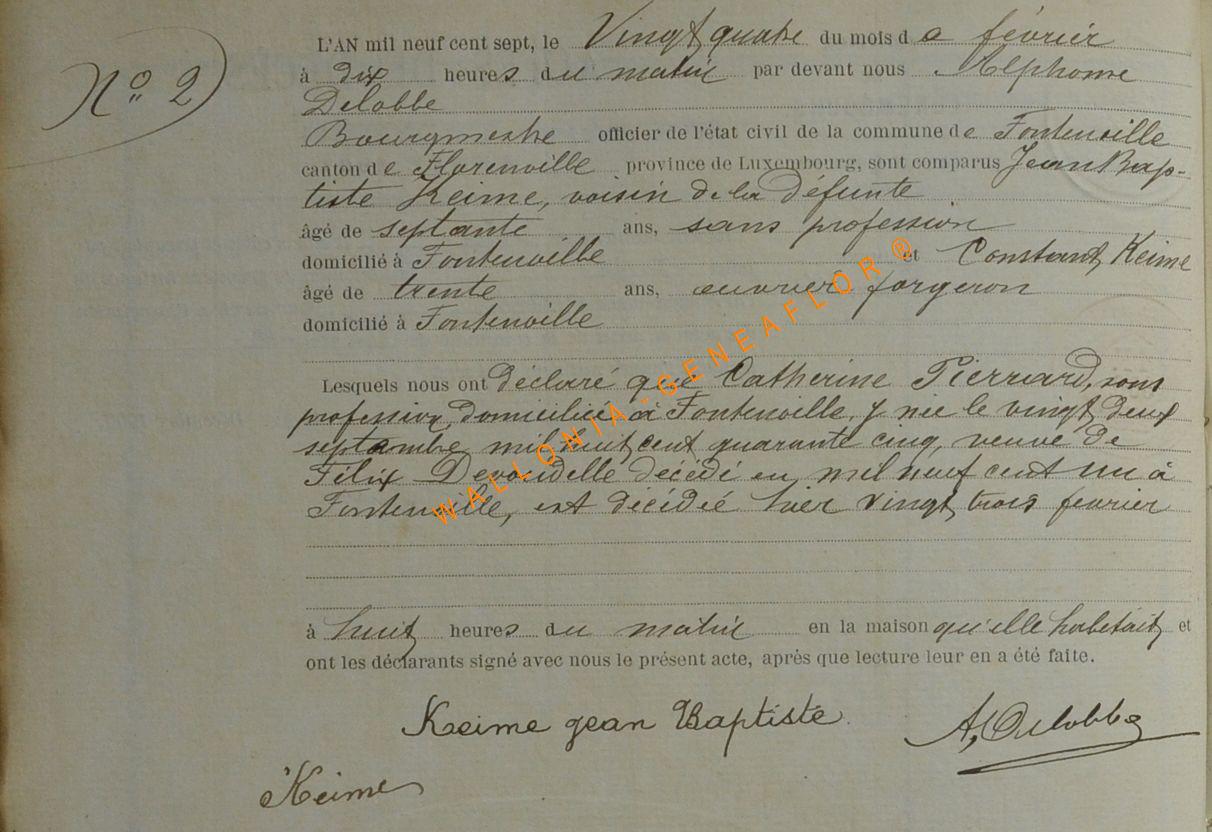 No 2
L'AN mil neuf cent sept, le Vingt quatre du mois de février
à dix heures du matin par devant nous Alphonse
Delobbe
Bourgmestre officier de l'état civil de la commune de Fontenoille
canton de Florenville province de Luxembourg, sont comparus Jean Bap-
tiste Keime, voisin de la défunte
âgé de septante ans, sans profession
domicilié à Fontenoille et Constant Keime
âgé de trente ans, ouvrier forgeron
domicilié à Fontenoille
Lesquels nous ont déclaré que Catherine Pierrard, sans
profession, domiciliée à Fontenoille, y née le vingt deux
septembre mil huit cent quarante cinq, veuve de
Félix Devondelle décédé en mil neuf cent un à
Fontenoille, est décédée hier vingt trois février
à huit heures du matin en la maison qu'elle habitait et
ont les déclarants signé avec nous le présent acte, après que lecture leur en a été faite.
Keime jean Baptiste A, Delobbe
Keime
WALLONIA-GENEAFLOR ®